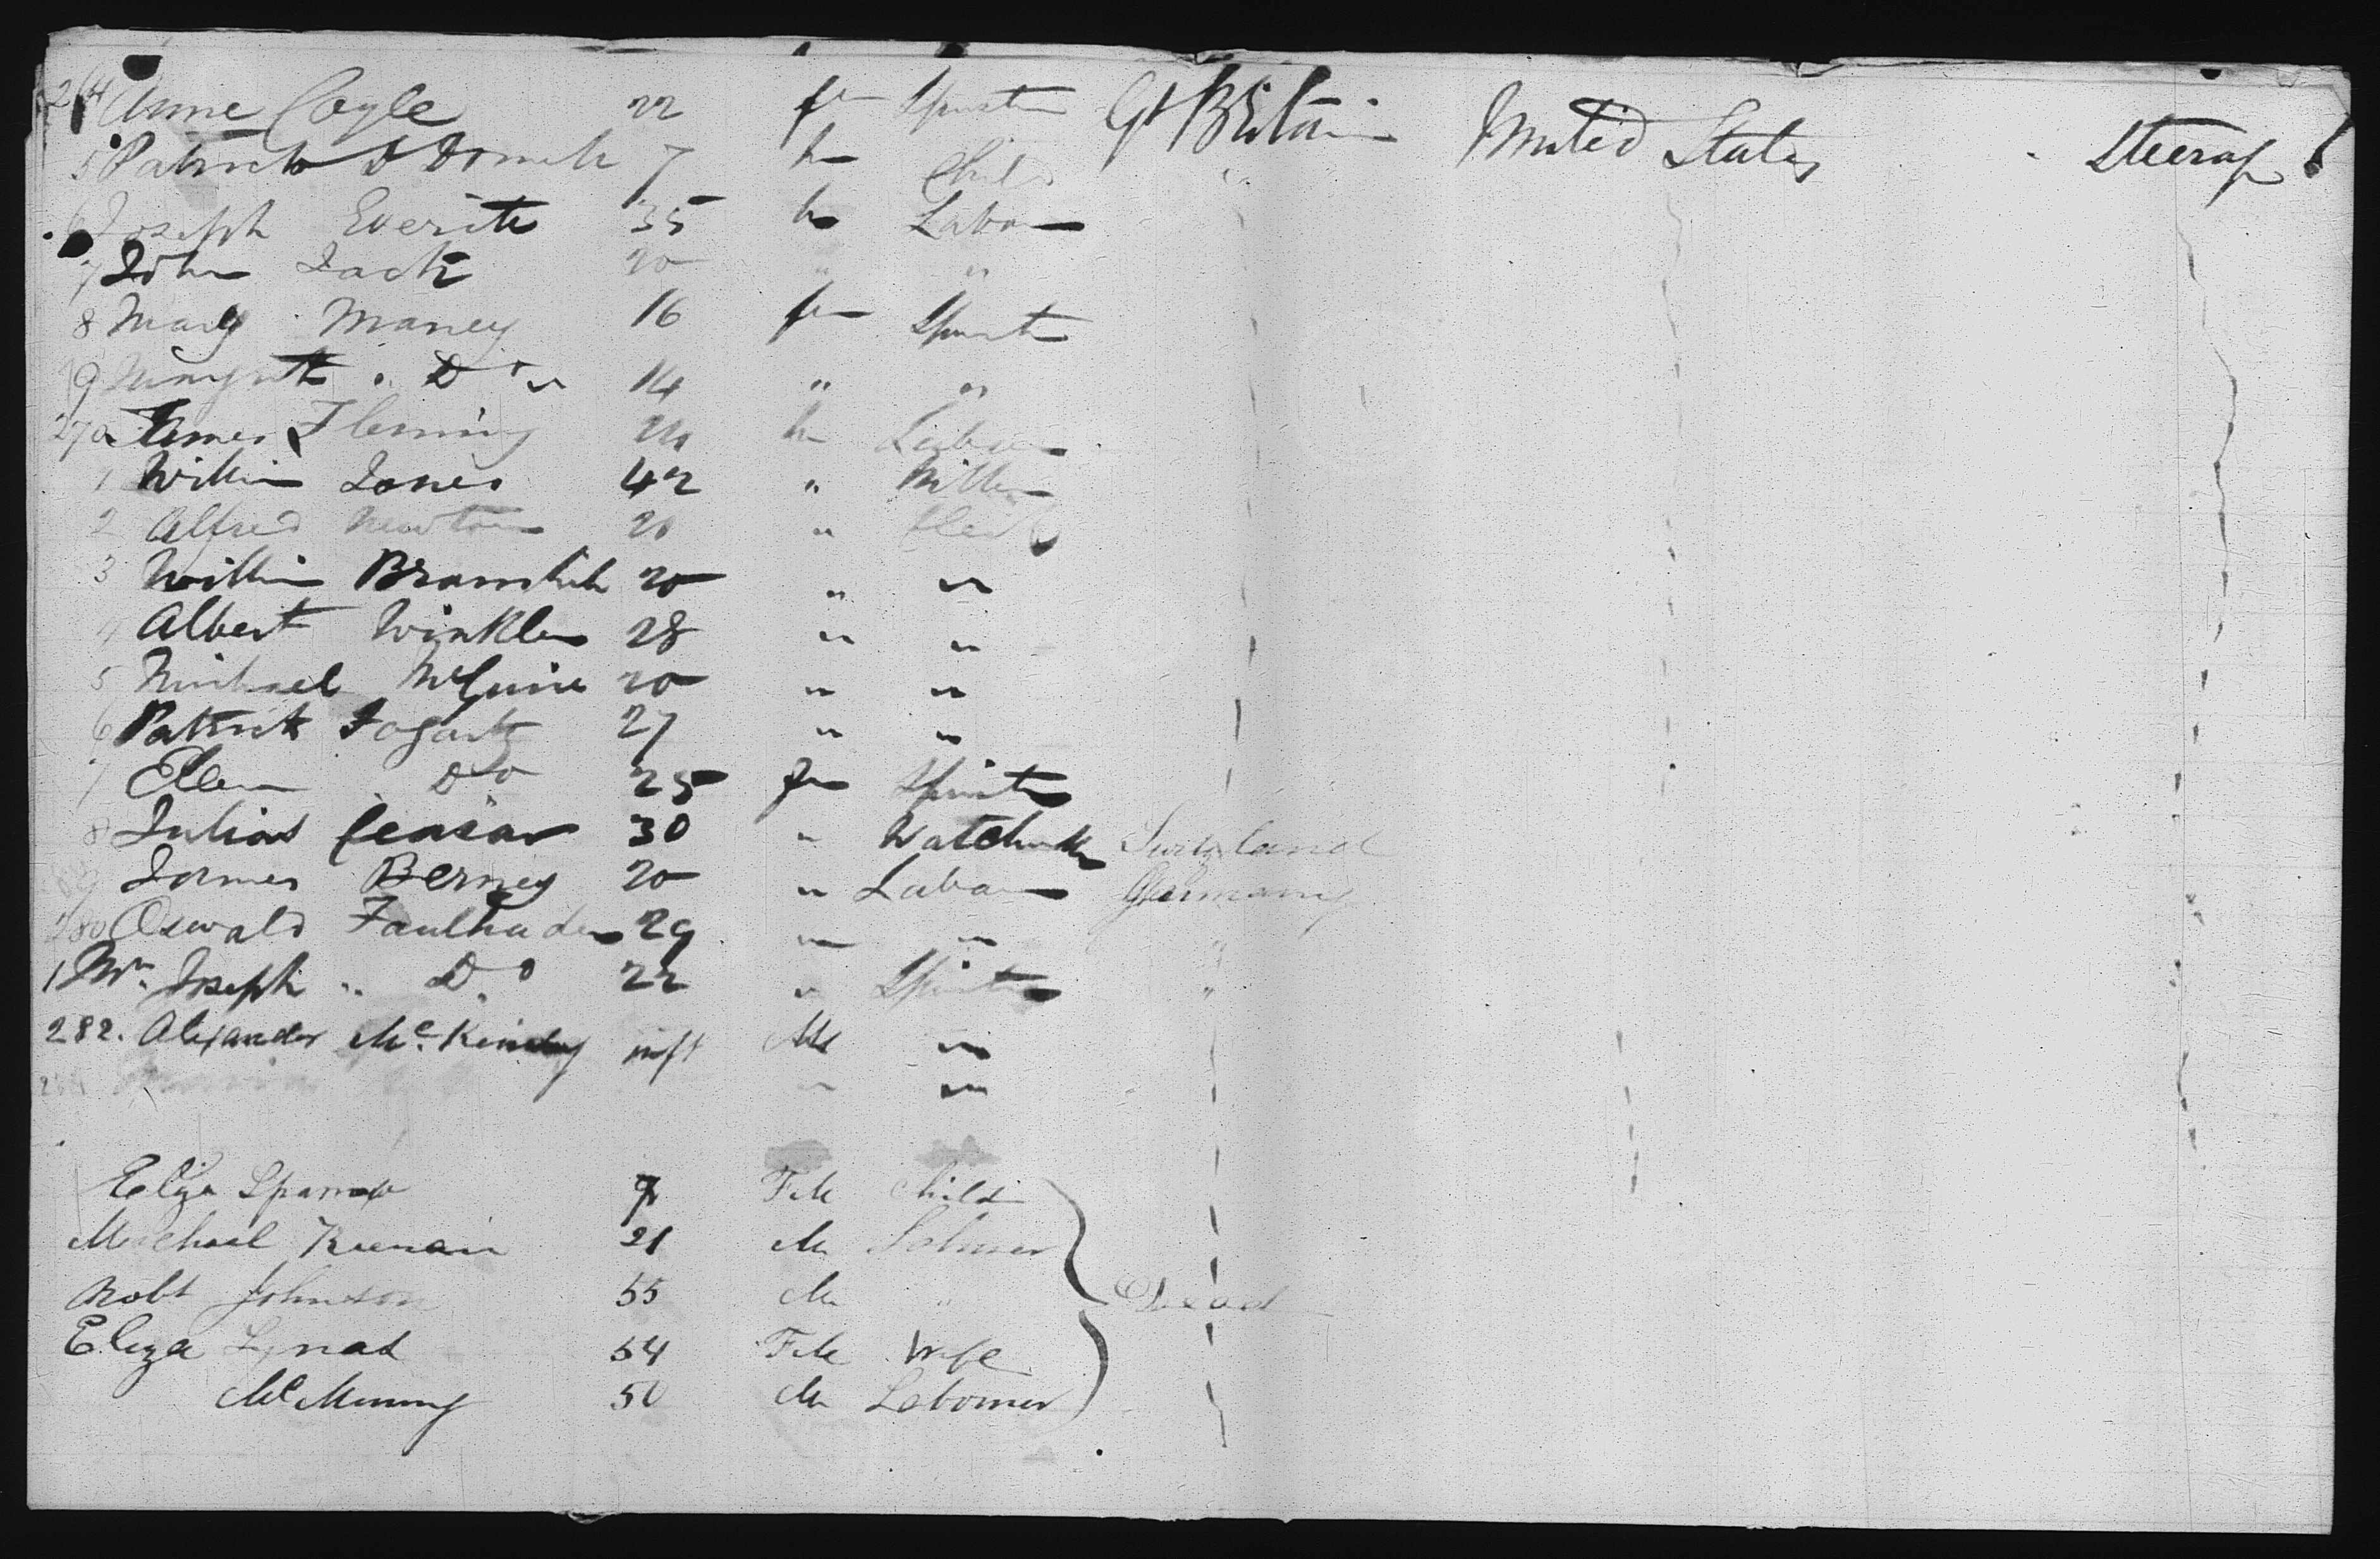 264 Anne Coyle 22 fe Spinst Gt Britain United States Steerag
5 Patrick 7 m Child "
6 Joseph Everitt 35 m Labor
7 John Jack 20 " "
8 Mary Maney 16 fe Spinst
9 Margrett " Do " 14 " "
270 James Fleming m Labor
1 Willm Jones 42 " Miller
2 Alfred Newton 20 " Clerk
3 Willim 20 " "
4 Albert Winkler 28 " "
5 Michael McGuire 20 " "
6 Patrick Fogarty 27 " "
7 Ellen Do 25 fe Spinst
8 Julius Ceasar 30 " Watchmk Switzland
9 James Berney 20 " Labor Germany
280 Oswald Faulhader 29 " " "
1 Mrs Joseph " Do 22 " Spinst "
282. Alexander Mc inft M "
" "
Eliza Sparrow Fele Child
Michael Keenan 21 M Labourer
Robt Johnston 55 M " Dead
Eliza Lynas 54 Fele Wife
50 M Labourer